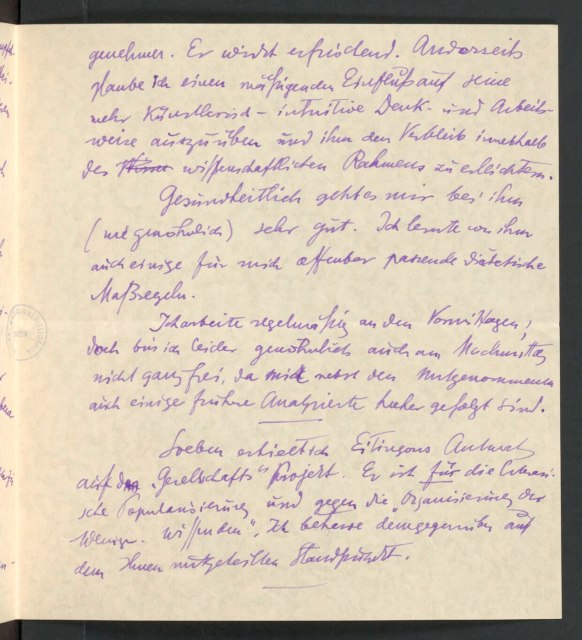 genehmer. Er wirkt erfrischend. Anderseits
glaube ich einen mäßigenden Einfluß auf seine
mehr künstlerisch-intuitive Denk- und Arbeits-
weise auszuüben und ihm den Verbleib innerhalb
des wissenschaftlichen Rahmens zu erleichtern.
Gesundheitlich geht es mir bei ihm
(wie gewöhnlich) sehr gut. Ich lernte von ihm
auch einige für mich offenbar passende diätetische
Maßregeln.
Ich arbeite regelmäßig an den Vormittagen;
doch bin ich leider gewöhnlich auch am Nachmittag
nicht ganz frei, da mir nebst den mitgenommenen
auch einige frühere Analysierte hieher gefolgt sind.
Soeben erhielt ich Eitingons Antwort
auf das „Gesellschafts“ projekt. Er ist für die literari-
sche Popularisierung und gegen die „Organisierung der
Wenige-wissenden“. Ich beharre demgegenüber auf
dem Ihnen mitgeteilten Standpunkt.